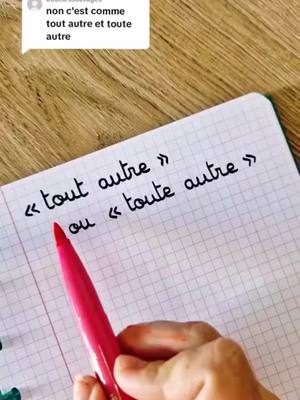 non c'est comme
tout autre et toute
autre
« tout autre »
ou « toute autre »